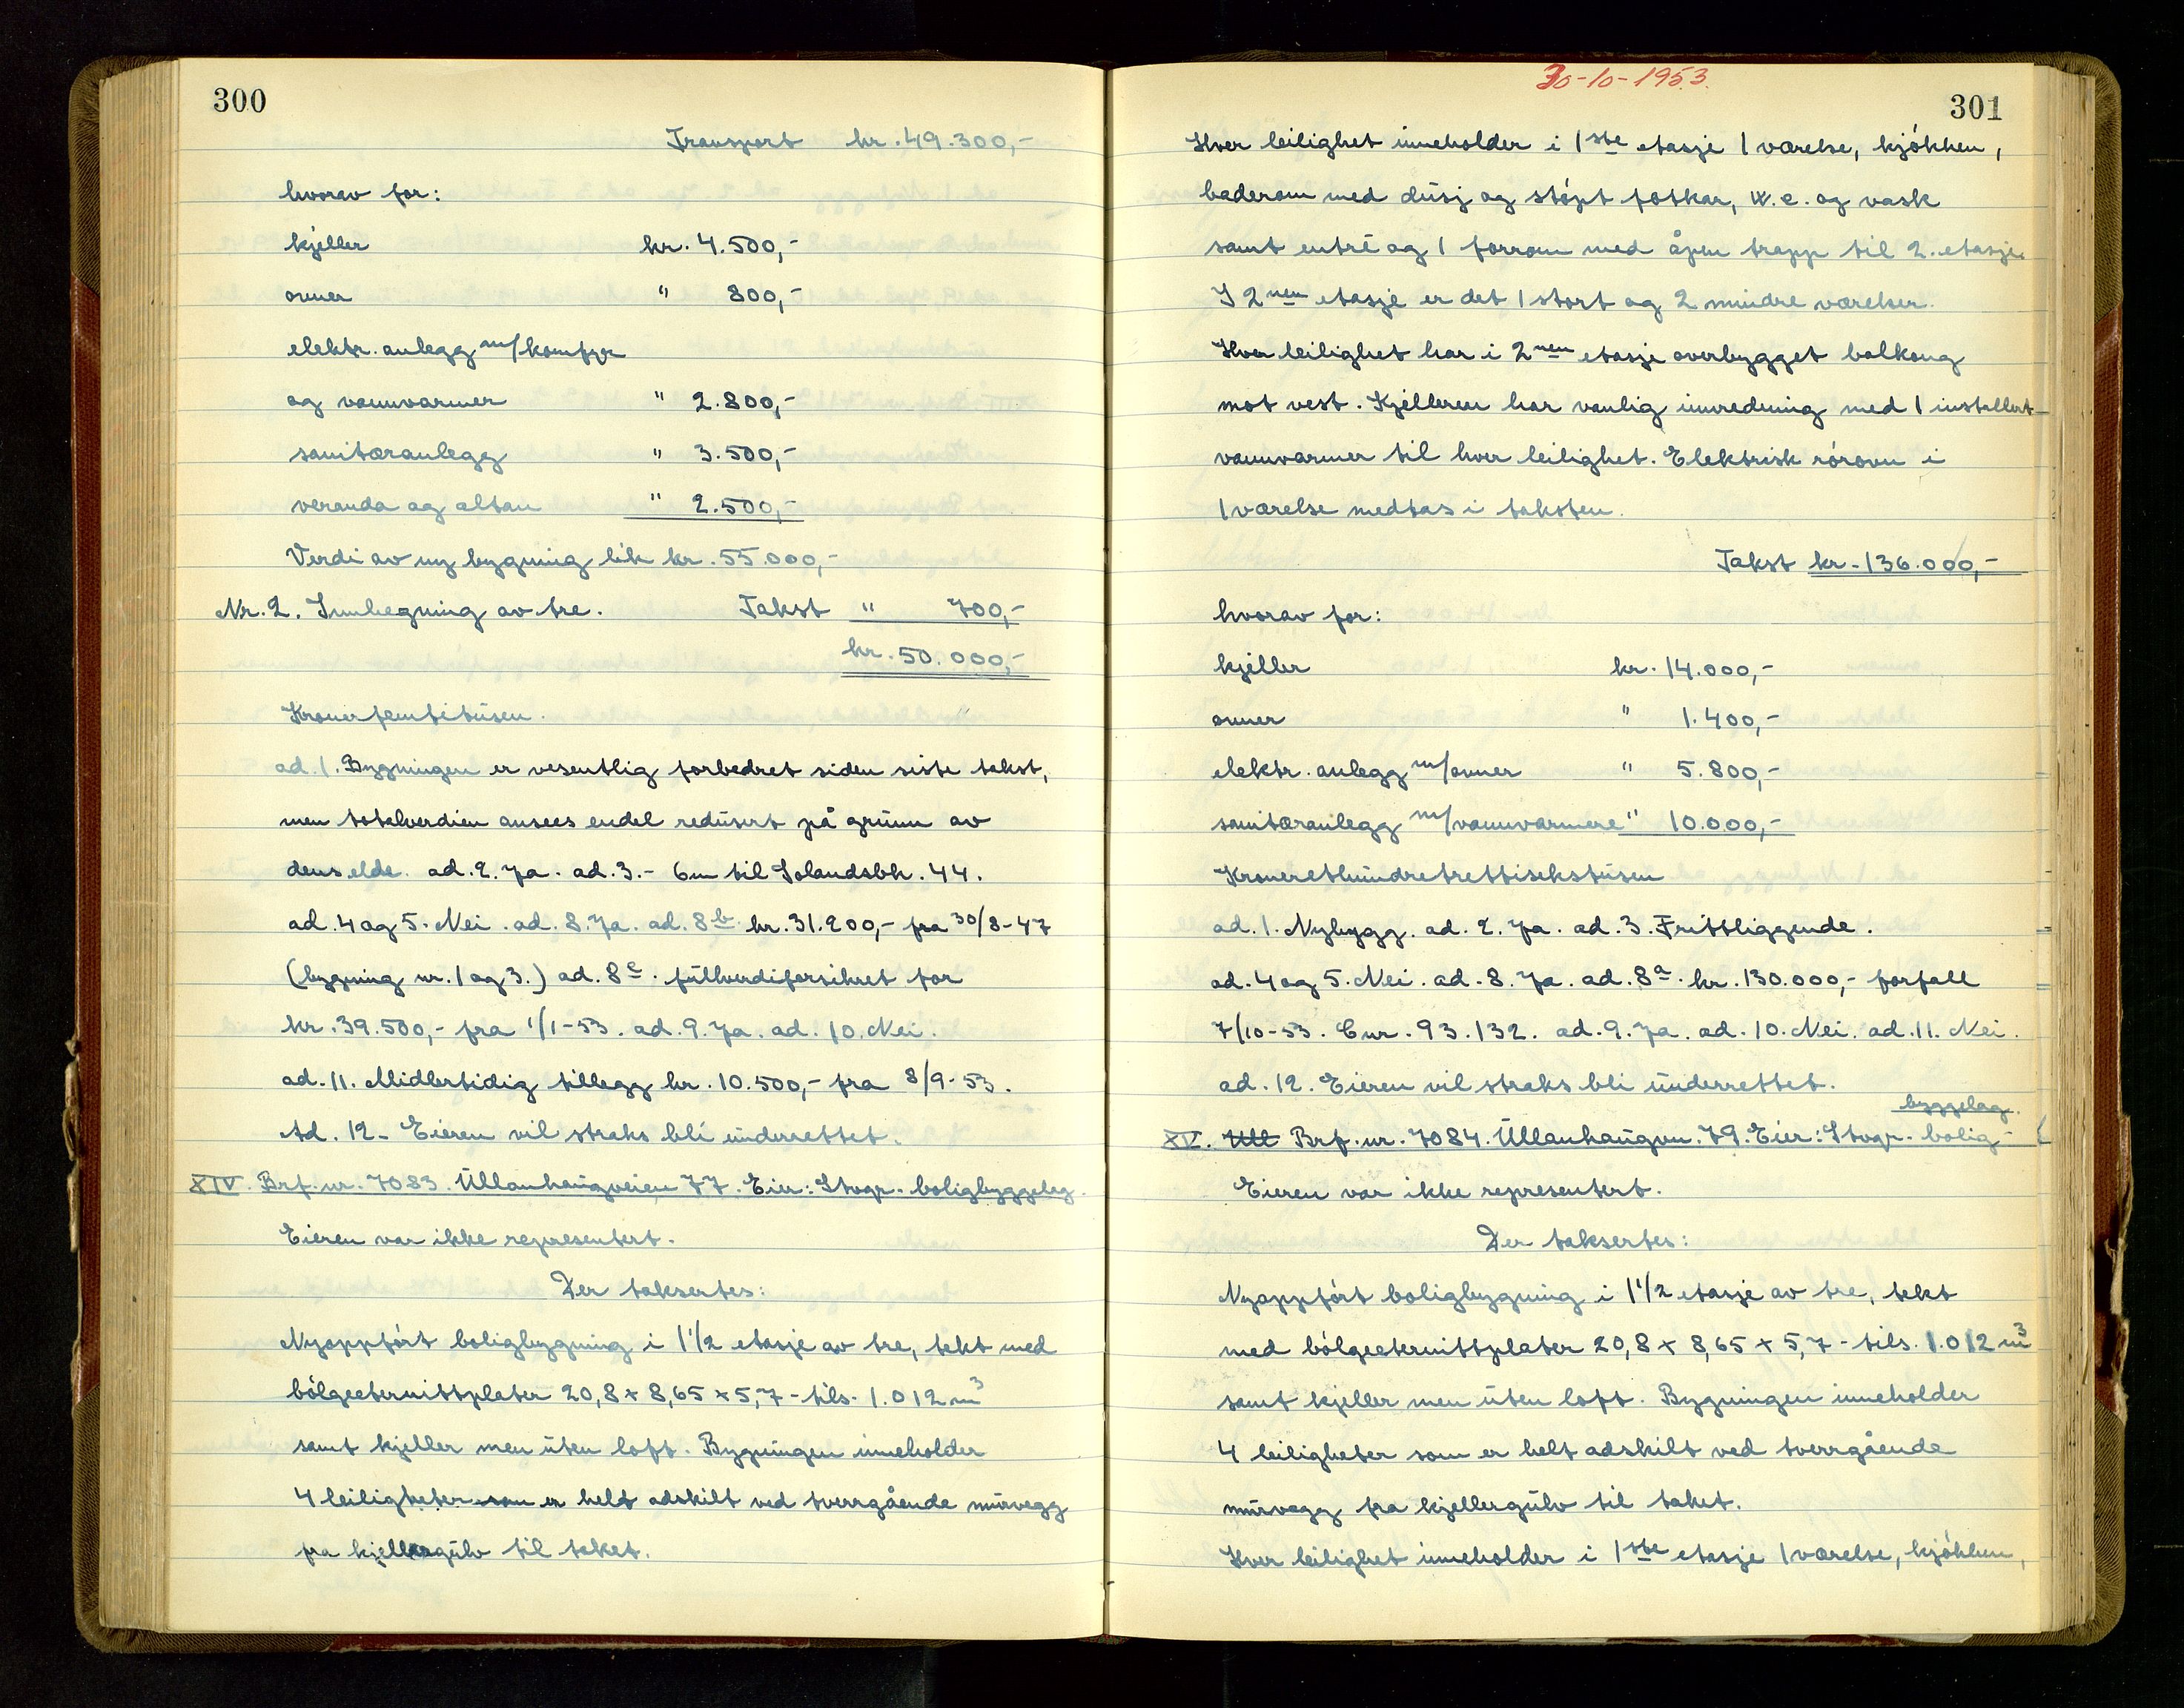 300
Transport kr. 49.300,-
hvorav for:
kjeller kr. 4.500,-
ovner " 800,-
elektr. anlegg m/komfyr
og vannvarmer " 2.800,-
sanitæranlegg " 3.500,-
veranda og altan " 2.500,-
Verdi av ny bygning lik kr. 55.000,-
Nr. 2. Innhegning av tre. Takst " 700,-
kr. 50.000,-
Kronerfemtitusen.
ad. 1. Bygningen er vesentlig forbedret siden siste takst,
men totalverdien ansees endel redusert på grunn av
dens elde. ad. 2. Ja. ad. 3. - 6 m til Solandsbk. 44.
ad. 4 og 5. Nei. ad. 8. Ja. ad. 8b. kr. 31.200,- fra 30/8-47
(bygning nr. 1 og 3.) ad. 8c. fullverdiforsikret for
kr. 39.500,- fra 1/1-53. ad. 9. Ja. ad. 10. Nei.
ad. 11. Midlertidig tillegg kr. 10.500,- fra 8/9-53.
Ad. 12. Eieren vil straks bli underrettet.
XIV. Brf. nr. 7083. Ullanhaugveien 77. Eier: Stvgr. boligbyggelag.
Eieren var ikke representert.
Der taksertes:
Nyoppført boligbygning i 1 1/2 etasje av tre, tekt med
bølgeeternittplater 20,8 x 8,65 x 5,7 - tils. 1.012 m3
samt kjeller men uten loft. Bygningen inneholder
4 leiligheter som er helt adskilt ved tverrgående murvegg
fra kjellergulv til taket.
30-10-1953.
301
Hver leilighet inneholder i 1ste etasje 1 værelse, kjøkken,
baderom med dusj og støpt fotkar, w.c. og vask
samt entré og 1 forrom med åpen trapp til 2. etasje.
I 2nen etasje er det 1 stort og 2 mindre værelser.
Hver leilighet har i 2nen etasje overbygget balkong
mot vest. Kjelleren har vanlig innredning med 1 installert
vannvarmer til hver leilighet. Elektrisk rørovn i
1 værelse medtas i taksten.
Takst kr. 136.000,-
hvorav for:
kjeller kr. 14.000,-
ovner " 1.400,-
elektr. anlegg m/ovner " 5.800,-
sanitæranlegg m/vannvarmere " 10.000,-
Kroneretthundretrettisekstusen
ad. 1. Nybygg. ad. 2. Ja. ad. 3. Frittliggende.
ad. 4 og 5. Nei. ad. 8. Ja. ad. 8a. kr. 130.000,- forfall
7/10-53. Cnr. 93.132. ad. 9. Ja. ad. 10. Nei. ad. 11. Nei.
ad. 12. Eieren vil straks bli underrettet.
byggelag.
XV. Ull Brf. nr. 7084. Ullanhaugvn. 79. Eier: Stvgr. bolig-
Eieren var ikke representert.
Der taksertes:
Nyoppført boligbygning i 1 1/2 etasje av tre, tekt
med bølgeeternittplater 20,8 x 8,65 x 5,7 - tils. 1.012 m3
samt kjeller men uten loft. Bygningen inneholder
4 leiligheter som er helt adskilt ved tverrgående
murvegg fra kjellergulv til taket.
Hver leilighet inneholder i 1ste etasje 1 værelse, kjøkken,